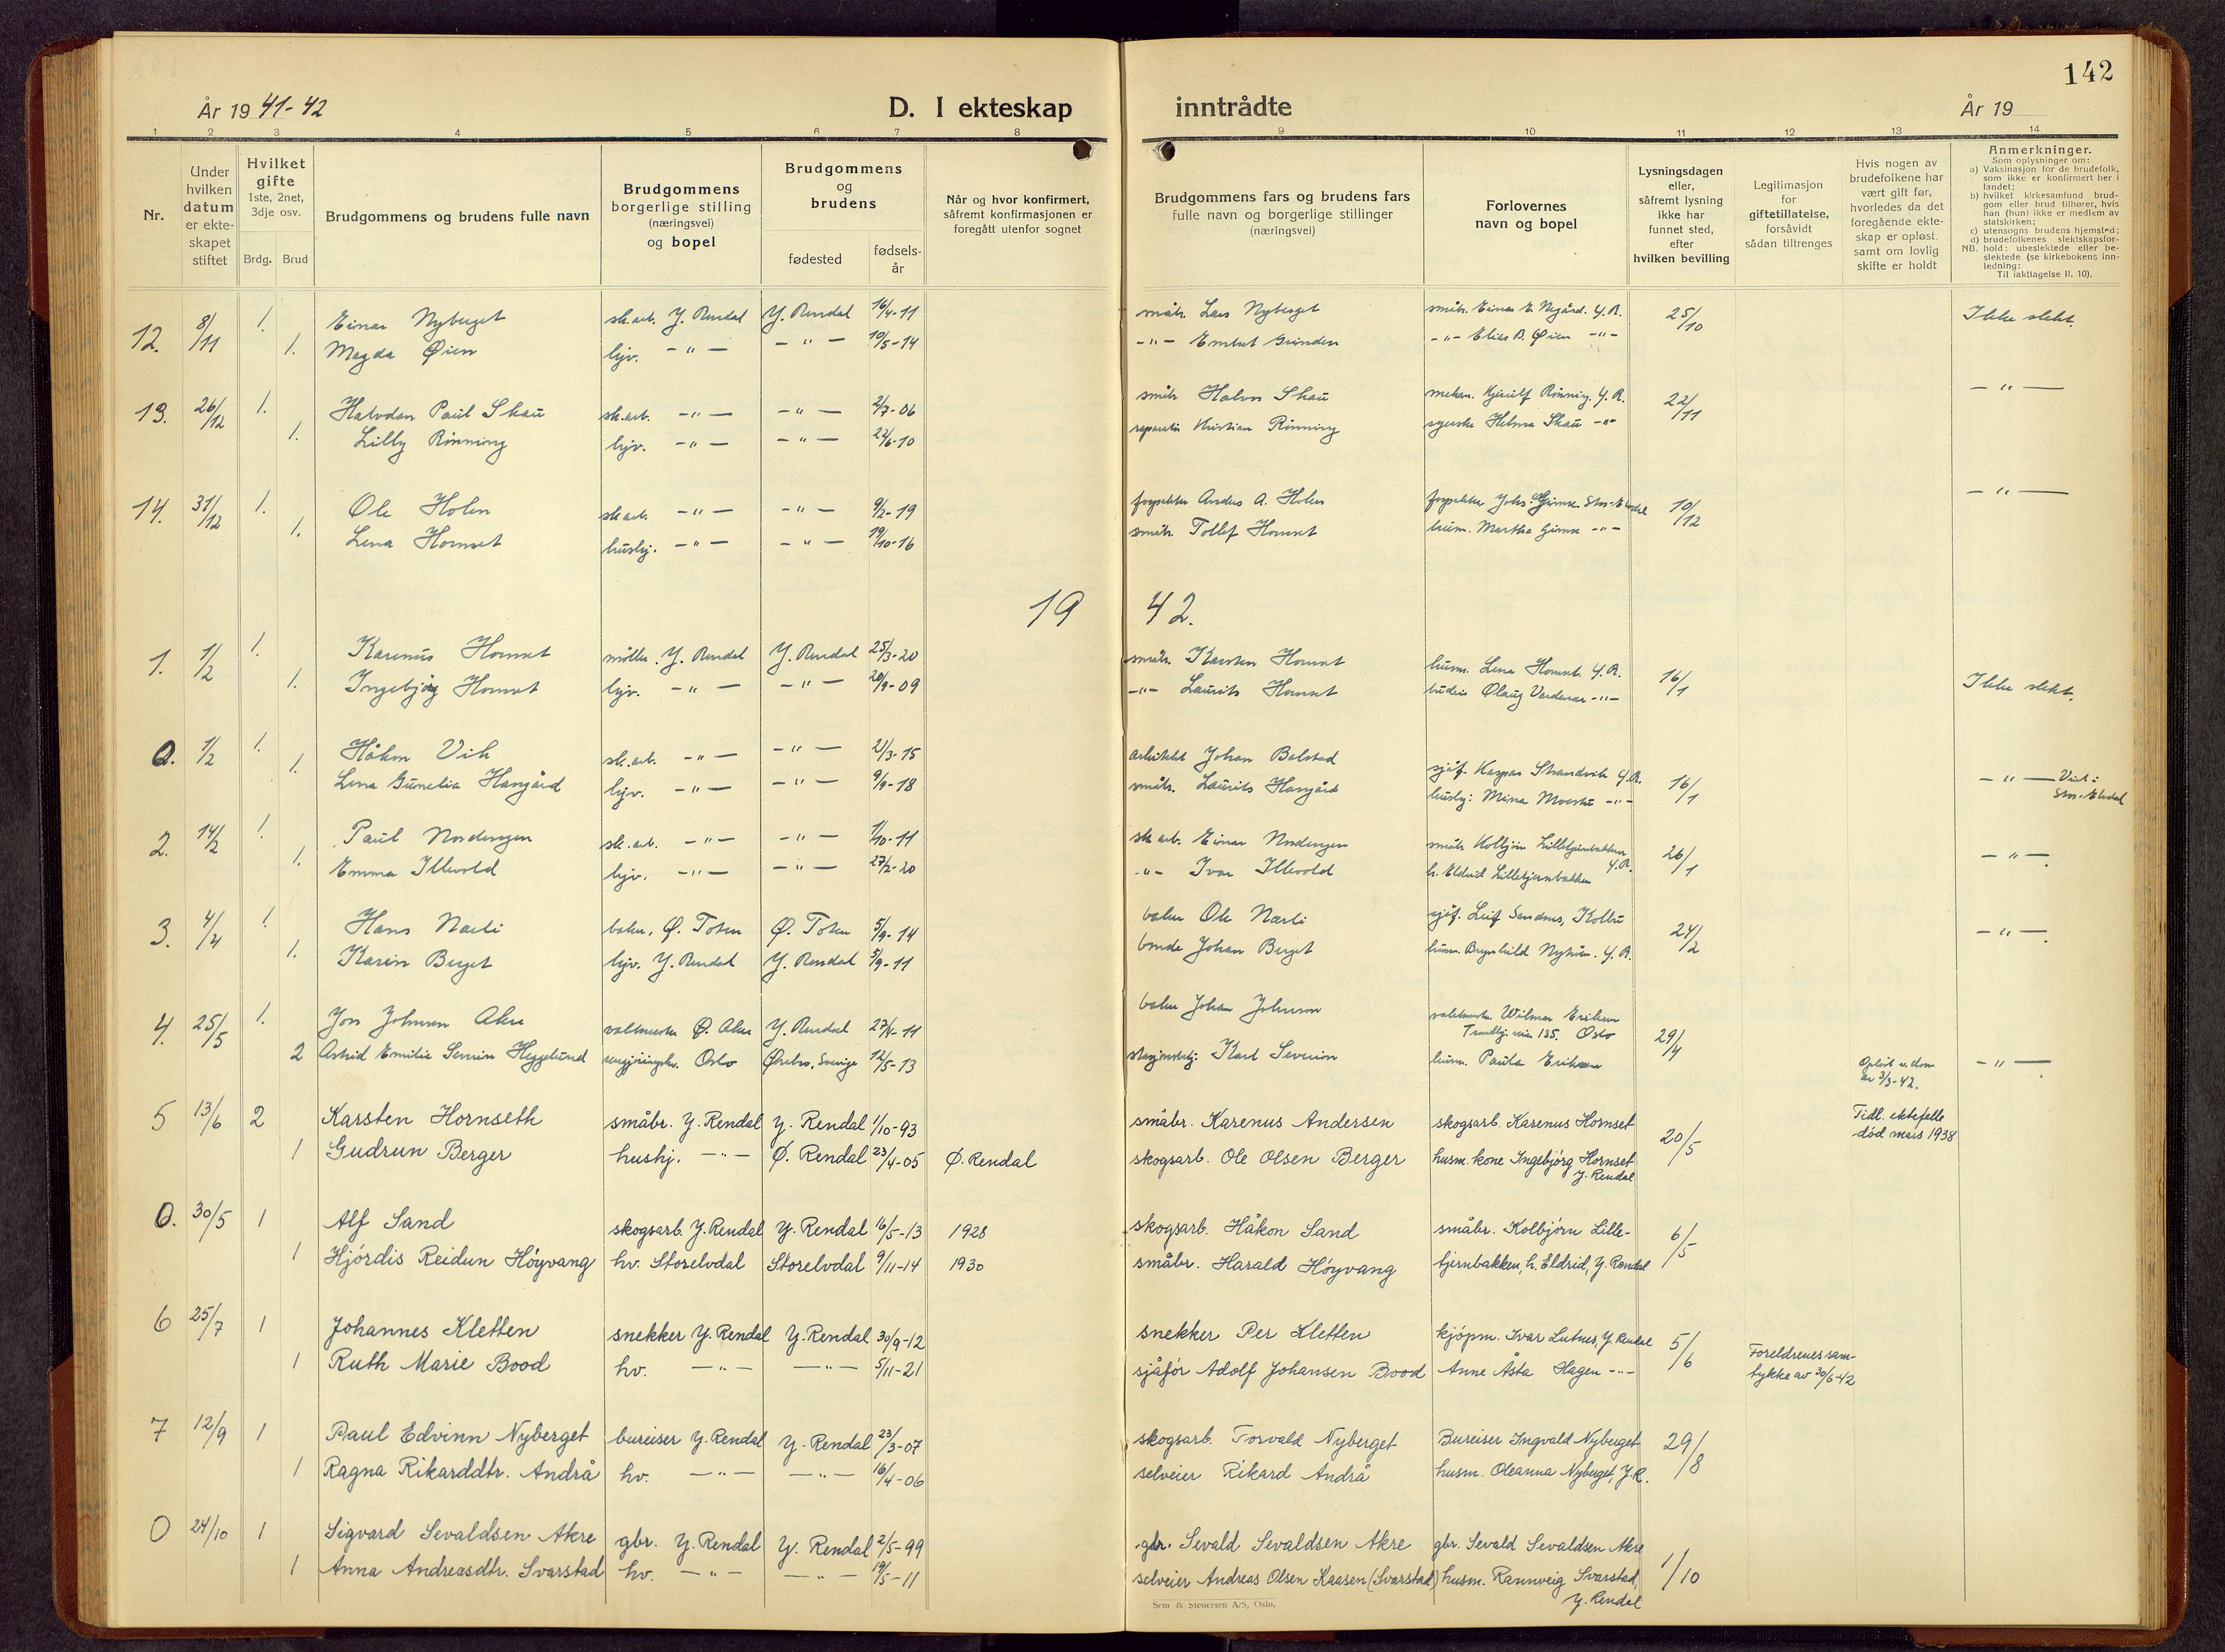 142
År 19 41-42
D. I ekteskap
inntrådte
År 19
1 2 3 4 5 6 7 8 9 10 11 12 13 14
Nr.
Under
hvilken
datum
er ekte-
skapet
stiftet
Hvilket
gifte
1ste, 2net,
3dje osv.
Brdg. Brud
Brudgommens og brudens fulle navn
Brudgommens
borgerlige stilling
(næringsvei)
og bopel
Brudgommens
og
brudens
fødested
fødsels-
år
Når og hvor konfirmert,
såfremt konfirmasjonen er
foregått utenfor sognet
Brudgommens fars og brudens fars
fulle navn og borgerlige stillinger
(næringsvei)
Forlovernes
navn og bopel
Lysningsdagen
eller,
såfremt lysning
ikke har
funnet sted,
efter
hvilken bevilling
Legitimasjon
for
giftetillatelse,
forsåvidt
sådan tiltrenges
Hvis nogen av
brudefolkene har
vært gift før,
hvorledes da det
foregående ekte-
skap er opløst,
samt om lovlig
skifte er holdt
Anmerkninger.
Som oplysninger om:
a) Vaksinasjon for de brudefolk,
som ikke er konfirmert her i
landet;
b) hvilket kirkesamfund brud-
gom eller brud tilhører, hvis
han (hun) ikke er medlem av
statskirken;
c) utensogns brudens hjemsted;
d) brudefolkenes slektskapsfor-
NB. hold: ubeslektede eller be-
slektede (se kirkebokens inn-
ledning:
Til iakttagelse II. 10).
12. 8/11 1. Einar Nyberget sk.arb. Y. Rendal Y. Rendal 16/4-11 småbr. Lars Nyberget småbr. Einar E. Nygård. Y.R. 25/10 Ikke slekt.
1. Magda Øien hjv. -"- -"- 10/5-14 -"- Embret Grinden -"- Elias B. Øien -"-
13. 26/12 1. Halvdan Paul Skau sk.arb. -"- -"- 2/7-06 småbr Halvor Skau mekan. Hjerulf Rønning. Y.R. 22/11 -"-
1. Lilly Rønning hjv. -"- -"- 22/6-10 reparatør Kristian Rønning syerske Helma Skau -"-
14. 31/12 1. Ole Holen sk.arb. -"- -"- 9/2-19 forpakter Anders A. Holen forpakter Johs. Gjimse Stor-Elvdal 10/12 -"-
1. Lena Hornset hushj. -"- -"- 19/10-16 småbr. Tollef Hornset husm. Martha Gjimse -"-
19 42.
1. 1/2 1. Karenus Hornset møller. Y. Rendal Y. Rendal 25/3-20 småbr. Karsten Hornset husm. Lena Hornset. Y.R. 16/1
1. Ingebjørg Hornset hjv. -"- -"- 20/9-09 -"- Laurits Hornset budeie Olaug Vardenær -"- Ikke slekt.
0. 1/2 1. Håkon Vik sk.arb. -"- -"- 21/3-15 arkitekt Johan Bolstad sjåf. Kaspar Strandvik Y.R. 16/1 -"- Viet i
1. Lena Gunelia Hangård hjv. -"- -"- 9/9-18 småbr. Laurits Hangård hushj: Mina Moestu -"- Stor-Elvdal
2. 14/2 1. Paul Nordengen sk.arb. -"- -"- 1/10-11 sk arb. Einar Nordengen småbr Kolbjørn Lilletjernbakken 26/1 -"-
1. Emma Illevold hjv. -"- -"- 27/2-20 -"- Ivar Illevold h. Eldrid Lilletjernbakken Y.R.
3. 4/4 1. Hans Narli baker, Ø. Toten Ø. Toten 5/9-14 baker Ole Narli sjåf. Leif Sandnes, Kolbu 24/2 -"-
1. Karin Berget hjv. Y. Rendal Y. Rendal 5/9-11 bonde Johan Berget husm. Brynhild Nyhus. Y.R.
4. 25/5 1. Jon Johnsen Aker Ø. Aker Y. Rendal 27/4-11 baker Johan Johnsen Wilmar Eriksen
Trondhj. veien 135. Oslo 29/4
2 Astrid Emilie Severin Heggelund rengjøringshv. Oslo Ørebro, Sverige 12/5-13 Karl Severin husm. Paula Eriksen Opløst v. dom
av 3/3-42. -"-
5 13/6 2 Karsten Hornseth småbr. Y. Rendal Y. Rendal 1/10-93 småbr. Karenus Andersen skogsarb. Karenus Hornset 20/5 Tidl. ektefelle
død mars 1938
1 Gudrun Berger hushj. -"- Ø. Rendal 23/4-05 Ø. Rendal skogsarb. Ole Olsen Berger husm. kone Ingebjørg Hornset
Y. Rendal
0. 30/5 1 Alf Sand skogsarb. Y. Rendal Y. Rendal 16/5-13 1928 skogsarb. Håkon Sand småbr. Kolbjørn Lille- 6/5
1 Hjördis Reidun Höyvang hv. Storelvdal Storelvdal 9/11-14 1930 småbr. Harald Höyvang tjernbakken, h. Eldrid, Y. Rendal
6 25/7 1 Johannes Kletten snekker Y. Rendal Y. Rendal 30/9-12 snekker Per Kletten kjöpm. Ivar Lutnes, Y. Rendal 5/6 Foreldrenes sam-
tykke av 30/6-42
1 Ruth Marie Bood hv. -"- -"- 5/11-21 sjåför Adolf Johansen Bood Anne Åsta Hagen -"-
7 12/9 1 Paul Edvinn Nyberget bureiser Y. Rendal Y. Rendal 23/3-07 skogsarb. Torvald Nyberget Bureiser Ingvald Nyberget 29/8
1 Ragna Rikarddtr. Andrå hv. -"- -"- 16/4-06 selveier Rikard Andrå husm. Oleanna Nyberget, Y.R.
0 24/10 1 Sigvard Sevaldsen Akre gbr. Y. Rendal Y. Rendal 2/5-99 gbr. Sevald Sevaldsen Akre gbr. Sevald Sevaldsen Akre 1/10
1 Anna Andreasdtr. Svarstad hv. -"- -"- 19/5-11 selveier Andreas Olsen Kaasen (Svarstad) husm. Rannveig Svarstad,
Y. Rendal
Sem & Stenersen A/S, Oslo.